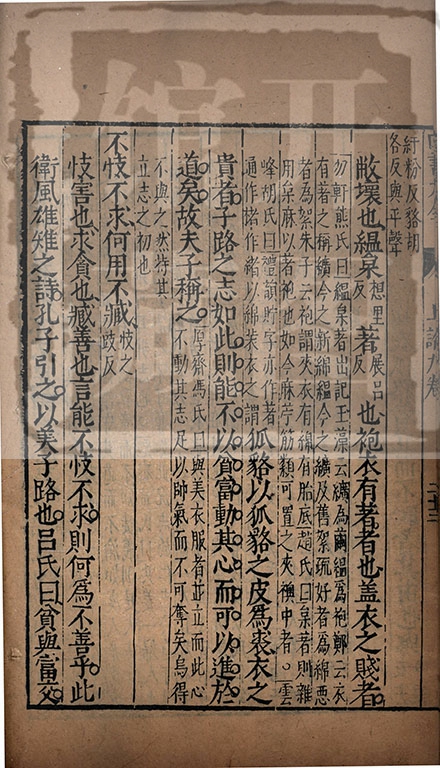 紆粉反貉胡
各反與平聲
敝壞也縕枲想里反著展呂反也袍衣有著者也蓋衣之賤者
勿軒熊氏曰縕枲著出記玉藻云纊為繭縕為袍鄭云衣
有著之稱纊今之新綿縕今之纊及舊絮疏好者為綿惡
者為絮朱子云袍謂夾衣有綿有胎底趙氏曰枲著則雜
用枲麻以著袍也如今麻苧筋類可置之夾襖中者○雲
峰胡氏曰禮韻貯字亦作著
通作褚作緒以綿裝衣之謂
狐貉以狐貉之皮爲裘衣之
貴者子路之志如此則能不以貧富動其心而可以進於
道矣故夫子稱之
厚齋馮氏曰與美衣服者並立而此心
不動其志足以帥氣而不可奪矣烏得
不與之然特其
立志之初也
不忮不求何用不臧忮之豉反
忮害也求貪也臧善也言能不忮不求則何爲不善乎此
衛風雄雉之詩孔子引之以美子路也呂氏曰貧與富交